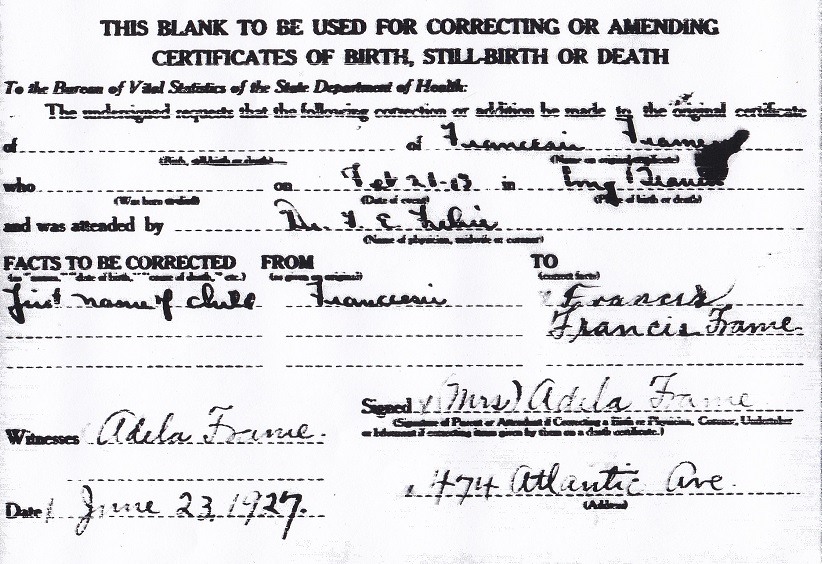 THIS BLANK TO BE USED FOR CORRECTING OR AMENDING
CERTIFICATES OF BIRTH, STILL-BIRTH OR DEATH
To the Bureau of Vital Statistics of the State Department of Health:
The undersigned requests that the following correction or addition be made to the original certificate
of of Francesir Frame
(Birth, still-birth or death) (Name on original certificate)
who on Feb 21-03 in Long
(Was born or died) (Date of event) (Place of birth or death)
and was attended by Dr. F. E.
(Name of physician, midwife or coroner)
FACTS TO BE CORRECTED FROM TO
(as "name," "date of birth," "cause of death," etc.) (as given on original) (correct facts)
First name of child Francesir Francis
Francis Frame
Signed (Mrs) Adela Frame
(Signature of Parent or Attendant if Correcting a Birth or Physician, Coroner, Undertaker
or Informant if correcting items given by them on a death certificate.)
Witnesses Adela Frame
474 Atlantic Ave
(Address)
Date June 23, 1927.